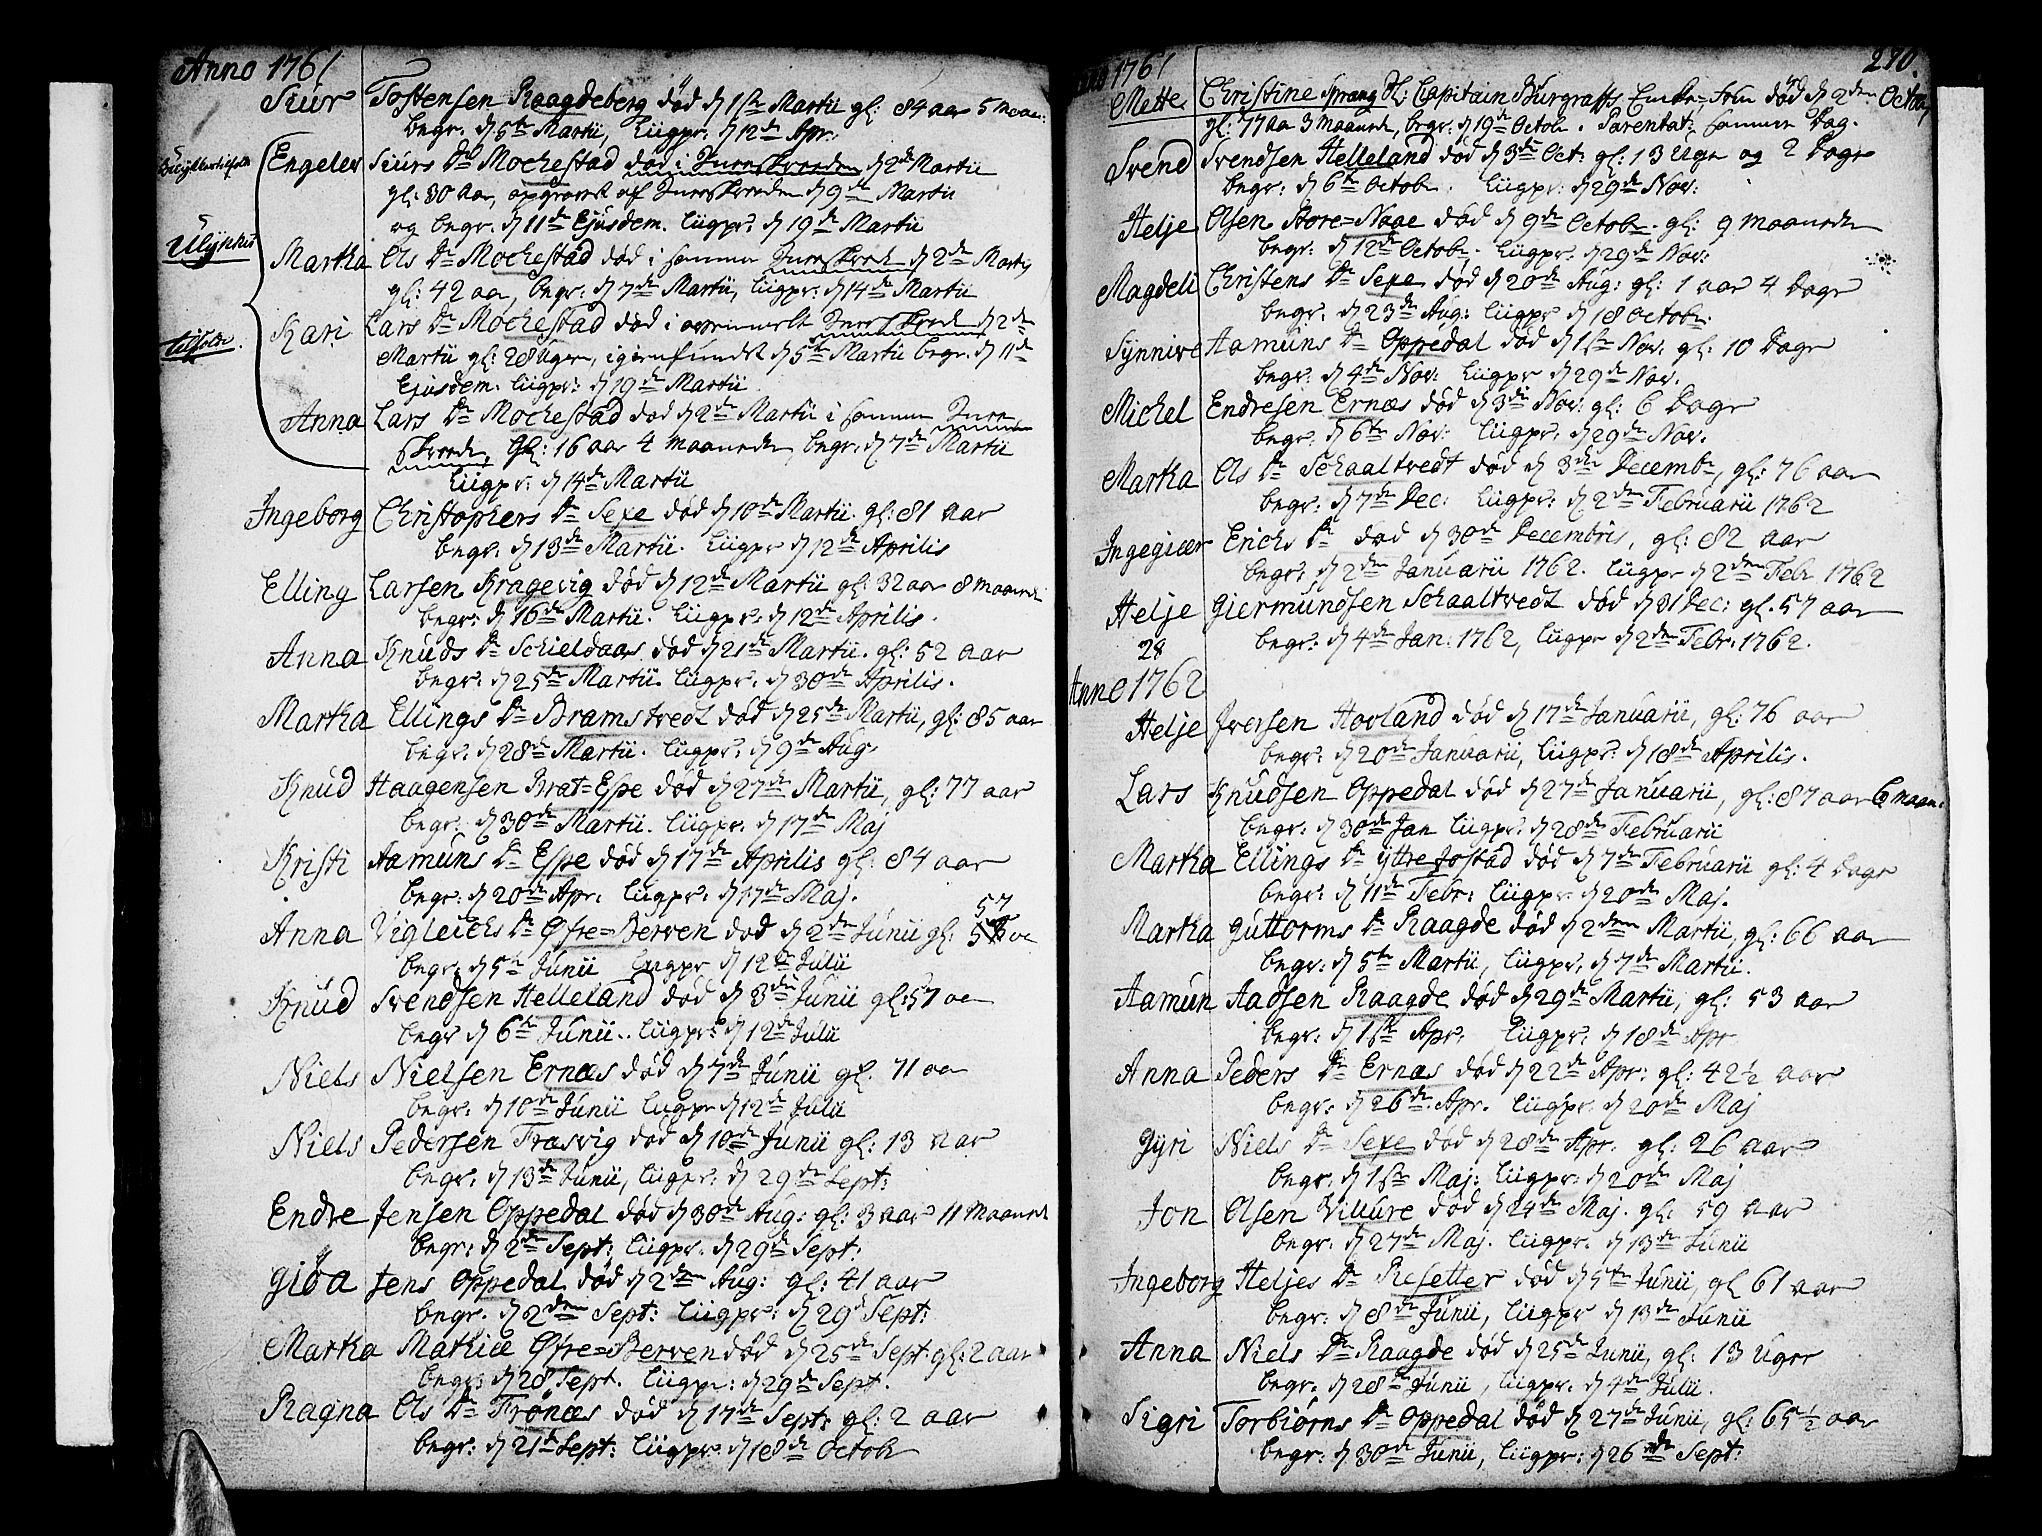 Anno 1761
Siur Tostensen Raagdeberg død d 1ste Martii gl: 84 aar 5 maan:
begr: d 5te Martii, Liigpr: d 12te Apr:
Engelev Siurs Dr Mochestad død i Snee Skreeden d 2de Martii
gl: 30 aar, opgravet af Snee Skreeden d 9de Martii
og begr: d 11de Ejusdem. Liigpr: d 19de Martii
Ulykkes
Martha Ols Dr Mochestad død i samme Snee Skreed d 2de Martii
gl: 42 aar, begr: d 7de Martii, Liigpr: d 14de Martii
Kari Lars Dr Mochestad død i Snee Skreed d 2de
tilfælde.
Martii gl: 28 Uger, igienfundet d 5te Martii begr: d 11de
Ejusdem. Liigpr: d 19de Martii
Anna Lars Dr Mochestad død d 2de Martii i samme Snee
Skreeden, gl: 16 aar 4 maaneder, begr: d 7de Martii
Liigpr: d 14de Martii
Ingeborg Christophers Dr Sexe død d 10de Martii. gl: 81 aar
begr: d 13de Martii. Liigpr d 12te Aprilis
Elling Larsen Kragevig død d 12te Martii gl: 32 aar 8 maaned
begr: d 16de Martii. Liigpr: d 12te Aprilis.
Anna Knuds Dr Schieldaas død d 21de Martii. gl: 52 aar
begr: d 25de Martii. Liigpr: d 30de Aprilis.
Martha Ellings Dr Bramstvedt død d 25de Martii, gl: 85 aar
begr: d 28de Martii. Liigpr: d 9de Aug.
Knud Haagensen Brat=Espe død d 27de Martii, gl: 77 aar
begr: d 30de Martii. Liigpr: d 17de Maj
Kristi Aamuns Dr Espe død d 17de Aprilis gl: 84 aar
begr: d 20de Apr: Liigpr: d 17de Maj.
57
Anna Vigleichs Dr Øfre=Berven død d 2de Junii gl:
begr: d 5te Junii Liigpr d 12te Julii
Knud Svendsen Helleland død d 3die Junii gl: 57 aar
begr d 6te Junii.. Liigpr: d 12te Julii
Niels Nielsen Ernæs død d 7de Junii gl. 71 aar
begr: d 10de Junii Liigpr d 12te Julii
Niels Pedersen Trasvig død d 10de Junii gl: 13 aar
begr: d 13de Junii, Liigpr: d 29de Sept:
Endre Jensen Oppedal død d 30de Aug: gl: 3 aar 11 Maaned
begr: d 2de Sept: Liigpr: d 29de Sept:
Giöa Jens Oppedal død d 2den Aug: gl: 41 aar
begr. d 2den Sept: Liigpr: d 29de Sept:
Martha Mathiæ Øfre=Berven død d 25de Sept. gl: 2 aar
begr: d 28 Sept. Liigpr: d 29de Sept.
Ragna Ols Dr Tronæs død d 17de Sept: gl: 2 aar
begr: d 21de Sept: Liigpr: d 18de Octob
1761
270.
Mette Christine Sprang Sl: Capitain Burgraffs Enke=Frue død d 2den Octob,
gl: 77 aar 3 maaneder, begr: d 19de Octob. Parentat: samme Dag.
Svend Svendsen Helleland død d 3die Oct: gl: 13 Uger og 2 Dage
begr: d 6te Octob. Liigpr: d 29de Nov:
Helje Olsen Store=Naae død d 9de Octob. gl: 9 maaneder
begr: d 12te Octob. Liigpr: d 29de Nov:
Magdeli Christens Dr Sexe død d 20de Aug: gl: 1 aar 4 Dage
begr: d 23de Aug: Liigpr d 18 Octob:
Synnive Aamuns Dr Oppedal død d 1ste Nov. gl: 10 Dage
begr: d 4de Nov: Liigpr d 29de Nov.
Michel Endresen Ernæs død d 3die Nov: gl: 6 Dage
begr: d 6te Nov: Liigpr. d 29de Nov.
Martha Ols Dr Schaaltvedt død d 3die Decemb., gl: 76 aar
begr: d 7de Dec: Liigpr: d 2den Februarii 1762
Ingegier Erichs Dr død d 30de Decembris, gl: 82 aar
begr: d 2den Januarii 1762. Liigpr d 2den Febr. 1762
Helje Giermundsen Schaaltvedt død d 31 Dec: gl. 57 aar
28
begr: d 4de Jan: 1762, Liigpr d 2den Febr: 1762.
Anno 1762
Helje Iversen Hovland død d 17de Januarii, gl: 76 aar
begr: d 20de Januarii, Liigpr: d 18de Aprilis.
Lars Knudsen Oppedal død d 27de Januarii, gl: 87 aar 6 maan:
begr: d 30de Jan Liigpr: d 28de Februarii
Martha Ellings Dr Yttre Jostad død d 7de Februarii gl: 4 Dage
begr: d 11de Febr: Liigpr: d 20de Maj.
Martha Guttorms Dr Raagde død d 2den Martii, gl: 66 aar
begr: d 5te Martii, Liigpr: d 7de Martii.
Aamun Aadsen Raagde død d 29de Martii, gl: 53 aar
begr: d 1ste Apr. Liigpr: d 18de Apr.
Anna Peders Dr Ernæs død d 22de Apr: gl: 42½ aar
begr: d 26de Apr. Liigpr: d 20de Maj
Gyri Niels Dr Sexe død d 28de Apr. gl: 26 aar
begr: d 1ste Maj: Liigpr: d 20de Maj
Jon Olsen Villure død d 24de Maj. gl: 59 aar
begr: d 27de Maj. Liigpr: d 13de Junii
Ingeborg Heljes Dr Resetter død d 5te Junii, gl 61 aar
begr: d 8de Junii, Liigpr d 13de Junii
Anna Niels Dr Raagde død d 25de Junii, gl: 13 Uger
begr: d 28de Junii, Liigpr: d 4de Julii.
Sigri Torbiørns Dr Oppedal død d 27de Junii, gl: 65½ aar
begr: d 30de Junii, Liigpr: d 26de Sept: